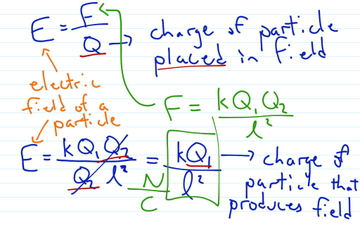 E = F/Q → charge of particle
placed in field
electric
field of a
particle
F = kQ₁Q₂/l²
E = kQ₁Q₂/Q₂l² = kQ₁/l² → charge of
particle that
produces field
N/C